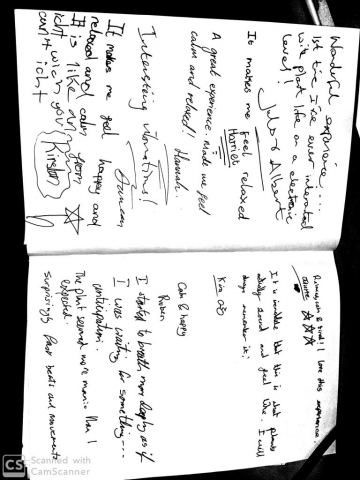 Wonderful experience...
1st time I've ever interacted
with plant life on a electronic
level!
Albert
It makes me feel relaxed
Harriet
A great experience. Made me feel
calm and relaxed! Hannah.
Interesting vibrations!
It makes me feel happy and
relaxed and calm from
It is like an
icht wich you
cant icht
Kirsten
love this experience.
It is incredible that this is what plants
sound and feel like. I will
always remember it!
Kira
Calm & happy
Ruben
I started to breath more deeply as if
I was waiting for something...
anticipation.
The plant seemed more manic than I
expected.
Surprisingly beats and movements
CS Scanned with
CamScanner